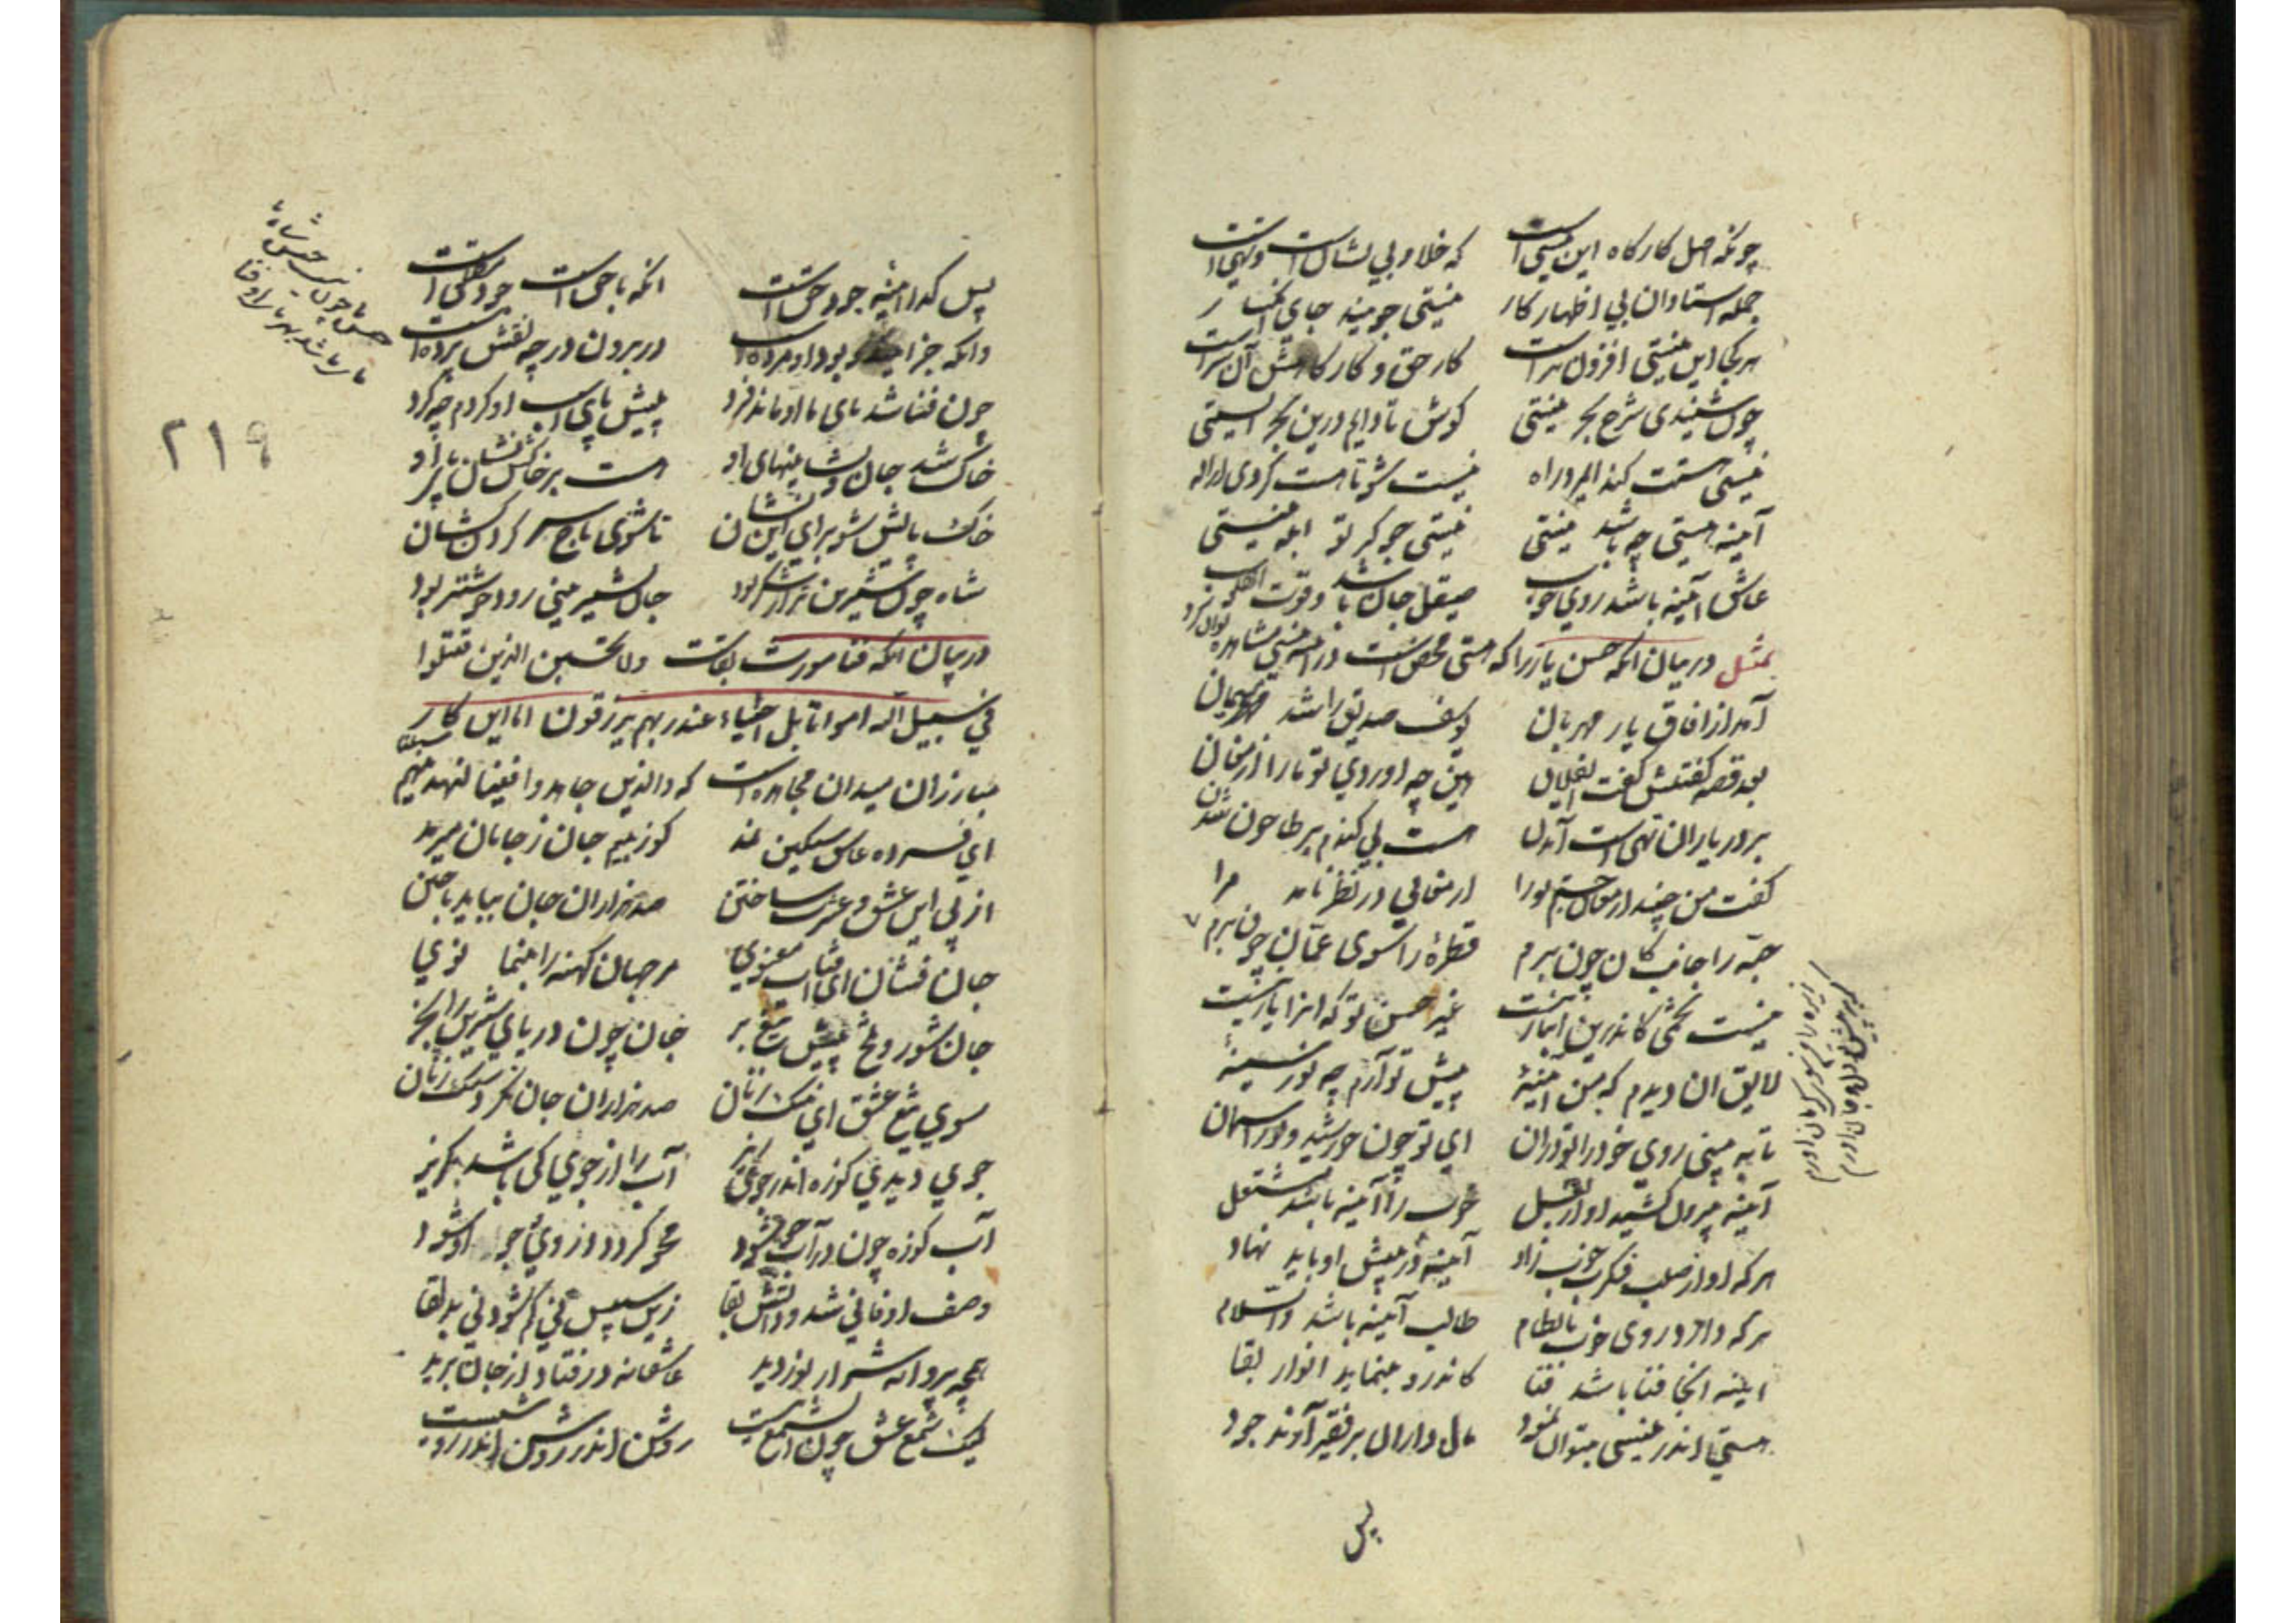 چونکه اصل کارکاه این نیستی است که خلا و بی نشان است و تهی است
جمله استادان پی اظهار کار نیستی جویند و جای انکسار
هر کجا این نیستی افزون تر است کار حق و کارکاهش آن سر است
چون شنیدی شرح بحر نیستی کوش تا دایم درین بحر ایستی
نیستی هستت کند ای مرد راه نیست شو تا هست کردی از اله
آینه هستی چه باشد نیستی نیستی جو کر تو ابله نیستی
عاشق آیینه باشد روی خوب صیقل جان باشد و قوت القلوب
تمثیل در بیان آنکه حسن یار را که هستی محض است در آینه نیستی مشاهده توان کرد
آمد از افاق یار مهربان یوسف صدیق را شد میهمان
بعد قصه کفتنش کفت ای فلان هین چه اوردی تو ما را ارمغان
بر در یاران تهی دست آمدن هست بی کندم بر طاحون شدن
کفت من چند ارمغان جستم تورا ارمغانی در نظر نامد مرا
حبّه را جانب کان چون برم قطرهٔ را سوی عمّان چون برم
نیست تخمی کاندرین انبار نیست غیر حسن تو که انرا یار نیست
لایق ان دیدم که من آیینهٔ پیش تو آرم چو نور سینهٔ
تا به بینی روی خود را تو دران ای تو چون خورشید و نور اسمان
آینه بیرون کشید او از بغل خوب را آیینه باشد مشتغل
هرکه او از صلب فکرت خوب زاد آینه در پیش او باید نهاد
هرکه دارد روی خوب با نظام طالب آیینه باشد والسلام
اینه انجا فنا باشد فنا کاندرو بنماید انوار بقا
هستی اندر نیستی بتوان نمود مال داران بر فقیر آوند جود
پس
پس کدا آیینه جود حق است انکه با حق است جود مطلق است
وانکه جز این دو بود او مرده است در برون در چو نقش پرده است
چون فنا شد مای ما او ماند فرد پیش پای اسب او کردم چو کرد
خاک شد جان و نشانیهای او هست بر خاکش نشان پای او
خاک پایش شو برای این نشان تا شوی تاج سر کردن کشان
شاه چون شیرین تر از شکر بود جان بشیرینی رود خوشتر بود
در بیان انکه فنا مورث بقاست ولا تحسبن الذین قتلوا
فی سبیل الله امواتا بل احیاء عند ربهم یرزقون اما این کار
مبارزان میدان مجاهده است که والذین جاهدوا فینا لنهدینهم سبلنا
ای فسرده عاشق سنکین نمد کو ز بیم جان ز جانان میرمد
از پی این عشق و عشرت ساختن صد هزاران جان بباید باختن
جان فشان ای افتاب معنوی مر جهان کهنه را بنما نوی
جان شور و تلخ پیش تیغ بر جان چون دریای شیرین را بخر
سوی تیغ عشق ای ننک زنان صد هزاران جان نکر دستک زنان
جوی دیدی کوزه اندر جوی ریز آب را از جوی کی باشد کریز
آب کوزه چون در آب جو شود محو کردد در وی و جو او شود
وصف او فانی شد و ذاتش بقا زین سپس نی کم شود نی بد لقا
همچو پروانه شرار نور دید عاشقانه در فتاد از جان برید
لیک شمع عشق چون ان شمع نیست روشن اندر روشن اندر روشنیست
۲۱۹